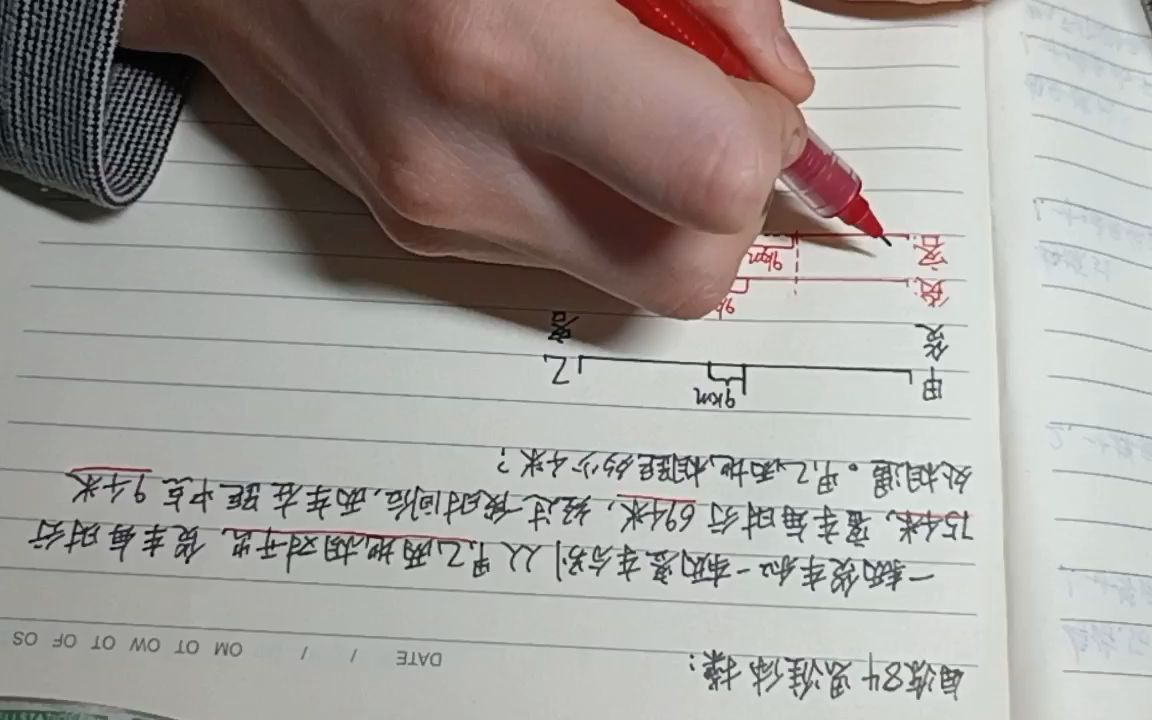 84 思维体操:
DATE / / MO TO WO TO FO SO
一辆货车和一辆客车分别从甲、乙两地相对开出,货车每时行
75千米,客车每时行69千米,经过一段时间后,两车在距中点9千米
处相遇。甲、乙两地相距多少千米?
甲 9km 乙
货 客
货:
客: 9km